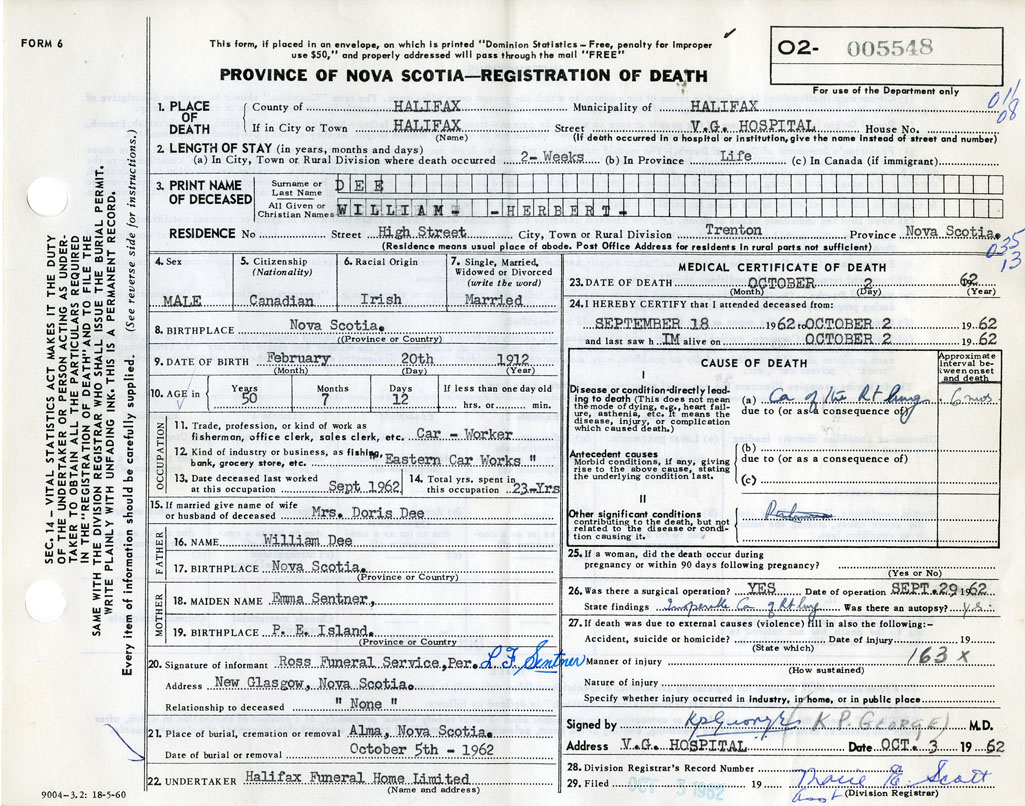 FORM 6
This form, if placed in an envelope, on which is printed "Dominion Statistics – Free, penalty for improper
use $50," and properly addressed will pass through the mail "FREE"
PROVINCE OF NOVA SCOTIA—REGISTRATION OF DEATH
O2- 005548
For use of the Department only
011
08
1. PLACE OF DEATH
County of HALIFAX Municipality of HALIFAX
If in City or Town HALIFAX Street V.G. HOSPITAL House No.
(Name) (If death occurred in a hospital or institution, give the name instead of street and number)
2. LENGTH OF STAY (in years, months and days)
(a) In City, Town or Rural Division where death occurred 2-Weeks (b) In Province Life (c) In Canada (if immigrant)
3. PRINT NAME OF DECEASED
Surname or Last Name DEE
All Given or Christian Names WILLIAM- -HERBERT-
RESIDENCE No Street High Street City, Town or Rural Division Trenton Province Nova Scotia.
(Residence means usual place of abode. Post Office Address for residents in rural parts not sufficient)
035
13
4. Sex
MALE
5. Citizenship
(Nationality)
Canadian
6. Racial Origin
Irish
7. Single, Married, Widowed or Divorced
(write the word)
Married
8. BIRTHPLACE Nova Scotia.
(Province or Country)
9. DATE OF BIRTH February 20th 1912
(Month) (Day) (Year)
10. AGE in Years 50 Months 7 Days 12 If less than one day old
hrs. or min.
OCCUPATION
11. Trade, profession, or kind of work as
fisherman, office clerk, sales clerk, etc. Car - Worker
12. Kind of industry or business, as fishing,
bank, grocery store, etc. "Eastern Car Works "
13. Date deceased last worked
at this occupation Sept 1962
14. Total yrs. spent in
this occupation 23-Yrs
15. If married give name of wife
or husband of deceased Mrs. Doris Dee
FATHER
16. NAME William Dee
17. BIRTHPLACE Nova Scotia.
(Province or Country)
MOTHER
18. MAIDEN NAME Emma Sentner,
19. BIRTHPLACE P. E. Island.
(Province or Country)
20. Signature of informant Ross Funeral Service, Per. L F Sentner
Address New Glasgow, Nova Scotia.
Relationship to deceased " None "
21. Place of burial, cremation or removal Alma, Nova Scotia.
Date of burial or removal October 5th - 1962
22. UNDERTAKER Halifax Funeral Home Limited
(Name and address)
MEDICAL CERTIFICATE OF DEATH
23. DATE OF DEATH OCTOBER 2 62
(Month) (Day) (Year)
24. I HEREBY CERTIFY that I attended deceased from:
SEPTEMBER 18 1962 to OCTOBER 2 19 62
and last saw h IM alive on OCTOBER 2 19 62
CAUSE OF DEATH
Approximate interval between onset and death
I
Disease or condition directly leading to death (This does not mean the mode of dying, e.g., heart failure, asthenia, etc. It means the disease, injury, or complication which caused death.)
(a) Ca of the Rt lung 6 mos
due to (or as a consequence of)
Antecedent causes
Morbid conditions, if any, giving rise to the above cause, stating the underlying condition last.
(b)
due to (or as a consequence of)
(c)
II
Other significant conditions
contributing to the death, but not related to the disease or condition causing it.
25. If a woman, did the death occur during
pregnancy or within 90 days following pregnancy?
(Yes or No)
26. Was there a surgical operation? YES Date of operation SEPT. 20 1962
State findings Inoperable Ca. of Rt lung Was there an autopsy? yes.
27. If death was due to external causes (violence) fill in also the following:-
Accident, suicide or homicide? Date of injury 19
(State which)
163 x
Manner of injury
(How sustained)
Nature of injury
Specify whether injury occurred in industry, in home, or in public place
Signed by KPGeorge (K P. GEORGE) M.D.
Address V.G. HOSPITAL Date OCT. 3 19 62
28. Division Registrar's Record Number
29. Filed OCT 5 1962 19 Marie E. Scott
asst (Division Registrar)
SEC. 14 – VITAL STATISTICS ACT MAKES IT THE DUTY
OF THE UNDERTAKER OR PERSON ACTING AS UNDER-
TAKER TO OBTAIN ALL THE PARTICULARS REQUIRED
IN THE "REGISTRATION OF DEATH" AND TO FILE THE
SAME WITH THE DIVISION REGISTRAR WHO SHALL ISSUE THE BURIAL PERMIT.
WRITE PLAINLY WITH UNFADING INK-THIS IS A PERMANENT RECORD.
Every item of information should be carefully supplied. (See reverse side for instructions.)
9004-3.2: 18-5-60